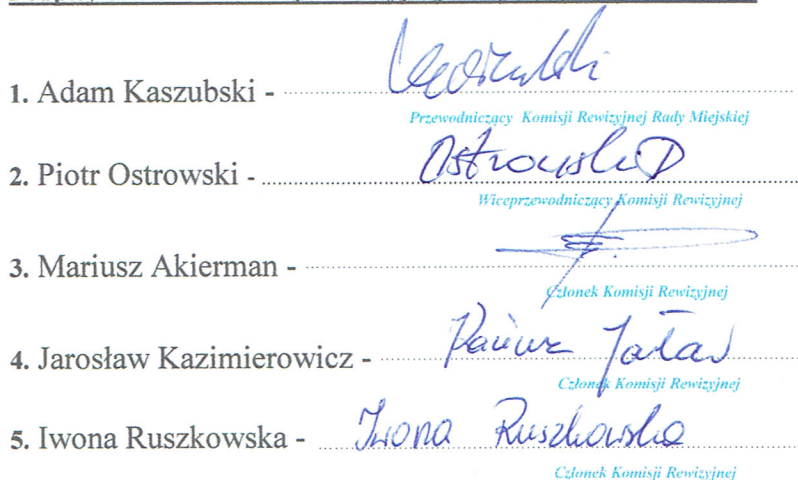 1. Adam Kaszubski -
Przewodniczący Komisji Rewizyjnej Rady Miejskiej
2. Piotr Ostrowski - Ostrowski P
Wiceprzewodniczący Komisji Rewizyjnej
3. Mariusz Akierman -
Członek Komisji Rewizyjnej
4. Jarosław Kazimierowicz -
Członek Komisji Rewizyjnej
5. Iwona Ruszkowska - Iwona Ruszkowska
Członek Komisji Rewizyjnej